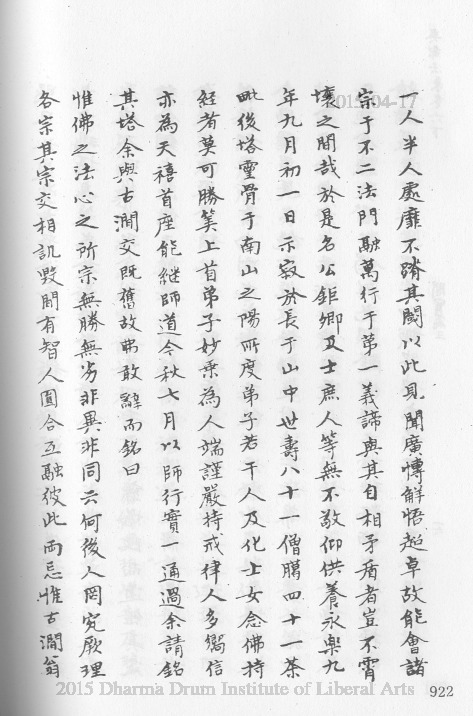 一人半人處靡不躋其閫以此見聞廣博解悟超卓故能會諸
宗于不二法門融萬行于第一義諦與其自相矛盾者豈不霄
壤之間哉於是名公鉅卿及士庶人等無不敬仰供養永樂九
年九月初一日示寂於長于山中世壽八十一僧臈四十一荼
毗後塔靈骨于南山之陽所度弟子若干人及化士女念佛持
經者莫可勝筭上首弟子妙乗為人端謹嚴持戒律人多嚮信
亦為天禧首座能継師道今秋七月以師行實一通過余請銘
其塔余與古澗交既舊故弗敢辭而銘曰
惟佛之法心之所宗無勝無劣非異非同云何後人罔究厥理
各宗其宗交相訊毀間有智人圓合互融彼此兩忌惟古澗翁
2015-04-17
2015 Dharma Drum Institute of Liberal Arts
922